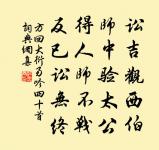 訟吉觀西伯
師中驗太公
得人師不戰
反已訟無終
方回大衍易吟四十首
詞典網集